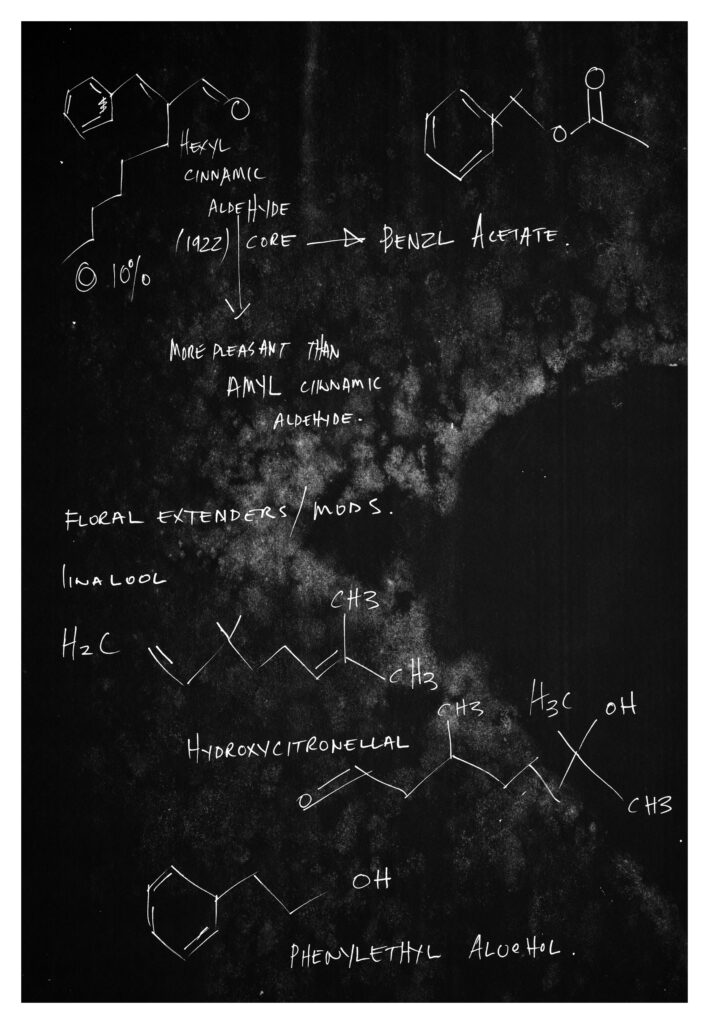 O
O
O
HEXYL
CINNAMIC
ALDEHYDE
(1922) CORE → BENZL ACETATE.
@ 10%
MORE PLEASANT THAN
AMYL CINNAMIC
ALDEHYDE.
FLORAL EXTENDERS/MODS.
LINALOOL
CH3
H2C
CH3
CH3
H3C
OH
HYDROXYCITRONELLAL
O
CH3
OH
PHENYLETHYL ALCOHOL.